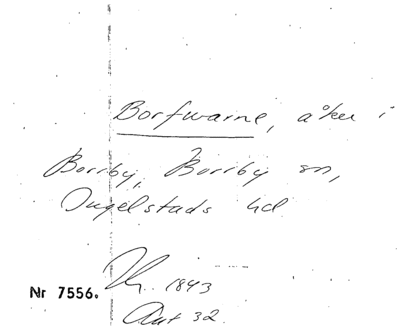 Borfwarne, åker i
Borrby, Borrby sn,
Ingelstads hd
1843
Nr 7556.
Akt 32